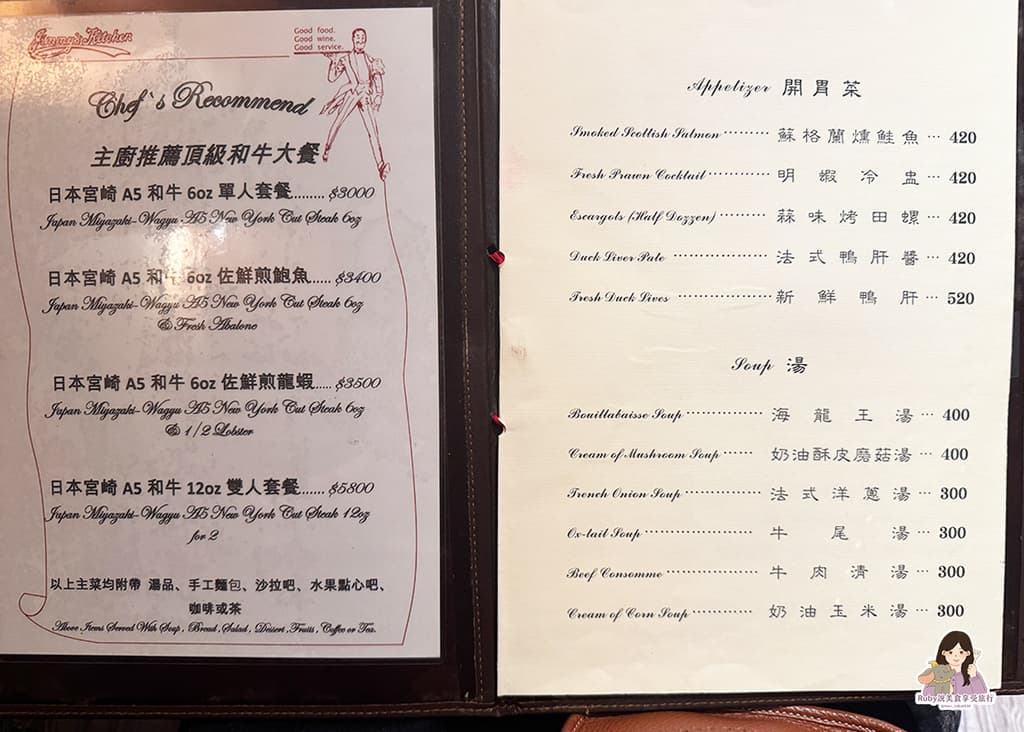 Jimmy's Kitchen
Good food.
Good wine.
Good service.
Chef's Recommend
主廚推薦頂級和牛大餐
日本宮崎 A5 和牛 6oz 單人套餐........ $3000
Japan Miyazaki-Wagyu A5 New York Cut Steak 6oz
日本宮崎 A5 和牛 6oz 佐鮮煎鮑魚...... $3400
Japan Miyazaki-Wagyu A5 New York Cut Steak 6oz
& Fresh Abalone
日本宮崎 A5 和牛 6oz 佐鮮煎龍蝦..... $3500
Japan Miyazaki-Wagyu A5 New York Cut Steak 6oz
& 1/2 Lobster
日本宮崎 A5 和牛 12oz 雙人套餐....... $5800
Japan Miyazaki-Wagyu A5 New York Cut Steak 12oz
for 2
以上主菜均附帶 湯品、手工麵包、沙拉吧、水果點心吧、
咖啡或茶
Above Items Served With Soup, Bread, Salad, Dessert, Fruits, Coffee or Tea.
Appetizer 開胃菜
Smoked Scottish Salmon ········ 蘇格蘭燻鮭魚 ··· 420
Fresh Prawn Cocktail ··········· 明蝦冷盅 ··· 420
Escargots (Half Dozzen) ········ 蒜味烤田螺 ··· 420
Duck Liver Pate ················ 法式鴨肝醬 ··· 420
Fresh Duck Lives ··············· 新鮮鴨肝 ··· 520
Soup 湯
Bouillabaisse Soup ·············· 海龍王湯 ··· 400
Cream of Mushroom Soup ······ 奶油酥皮蘑菇湯 ··· 400
French Onion Soup ·············· 法式洋蔥湯 ··· 300
Ox-tail Soup ···················· 牛尾湯 ··· 300
Beef Consomme ················· 牛肉清湯 ··· 300
Cream of Corn Soup ············ 奶油玉米湯 ··· 300
Ruby說美食享受旅行